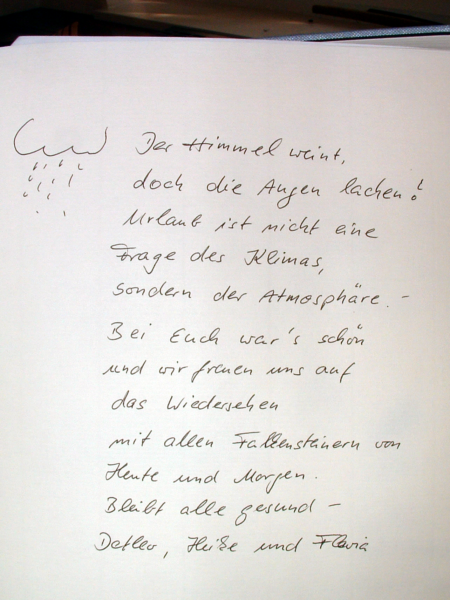 Der Himmel weint,
doch die Augen lachen!
Urlaub ist nicht eine
Frage des Klimas,
sondern der Atmosphäre. –
Bei Euch war's schön
und wir freuen uns auf
das Wiedersehen
mit allen Falkensteinern von
Heute und Morgen.
Bleibt alle gesund –
Detlev, und Flavia